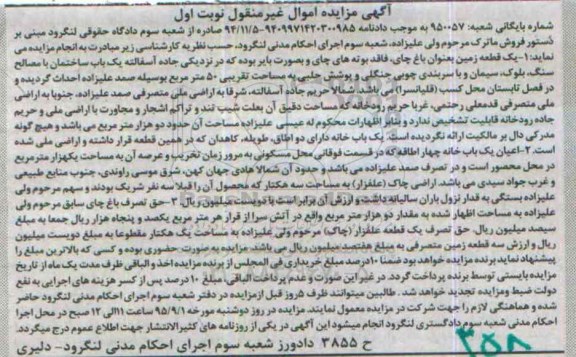 آگهی مزایده اموال غیرمنقول نوبت اول
شماره بایگانی شعبه: ۹۵۰۰۵۷ به موجب دادنامه ۹۴۰۹۹۷۱۴۲۰۳۰۰۹۸۵-۹۴/۱۱/۵ صادره از شعبه سوم دادگاه حقوقی لنگرود مبنی بر
دستور فروش ماترک مرحوم ولی علیزاده، شعبه سوم اجرای احکام مدنی لنگرود، حسب نظریه کارشناسی زیر مبادرت به انجام مزایده می
نماید: ۱-یک قطعه زمین بعنوان باغ چای، فاقد بوته های چای و بصورت بایر بوده که در نزدیکی جاده آسفالته یک باب ساختمان با مصالح
سنگ، بلوک، سیمان و با سربندی چوبی جنگلی و پوشش حلبی به مساحت تقریبی ۵۰ متر مربع بوسیله صمد علیزاده احداث گردیده و
در فصل تابستان محل کسب (قلیانسرا) می باشد. شمالاً حریم جاده آسفالته، شرقا به اراضی ملی متصرفی صمد علیزاده، جنوبا به اراضی
ملی متصرفی قدمعلی رحتمی، غربا حریم رودخانه که مساحت دقیق آن بعلت شیب تند و تراکم اشجار و مجاورت با اراضی ملی و حریم
جاده رودخانه قابلیت تشخیص ندارد و بنابر اظهارات محکوم له عیسی علیزاده مساحت آن حدود دو هزار متر مربع می باشد و هیچ گونه
مدرکی دال بر مالکیت ارائه نگردیده است. یک باب خانه دارای دو اطاق، طویله، کاهدان که در همین قطعه قرار داشته و اراضی ملی شده
است. ۲-اعیان یک باب خانه چهار اطاقه که در قسمت فوقانی محل مسکونی به مرور زمان تخریب و عرصه آن به مساحت یکهزار متر مربع
در محل محصور است و در تصرف صمد علیزاده می باشد و حدود آن شمالا هادی جهان کهن، شرق موسی راوندی، جنوب منابع طبیعی
و غرب جواد سیدی می باشد. اراضی چاک (علفزار) به مساحت سه هکتار که محصول آن را قبلا سه نفر شریک بودند و سهم مرحوم ولی
علیزاده بستگی به قدار نزول باران سالیانه داشت و ارزش آن برابر است با دویست میلیون ریال. ۳-حق تصرف باغ چای سابق مرحوم ولی
علیزاده به مساحت اظهار شده به مقدار دو هزار متر مربع واقع در آتش سرا از قرار هر متر مربع یکصد و پنجاه هزار ریال جمعا به مبلغ
سیصد میلیون ریال. حق تصرف یک قطعه علفزار (چاک) مرحوم ولی علیزاده به مساحت یک هکتار مقطوعا به مبلغ دویست میلیون
ریال و ارزش سه قطعه زمین متصرفی به مبلغ هفتصد میلیون ریال می باشد. مزایده به صورت حضوری بوده و کسی که بالاترین مبلغ را
پیشنهاد نماید برنده مزایده خواهد بود ضمنا ۱۰درصد مبلغ خریداری فی المجلس از برنده مزایده اخذ و الباقی ظرف مدت یک ماه از تاریخ
مزایده بایستی توسط برنده پرداخت گردد. در غیر این صورت و عدم پرداخت الباقی، مبلغ ۱۰ درصد پس از کسر هزینه های اجرایی به نفع
دولت ضبط ومزایده تجدید خواهد شد. طالبین میتوانند ظرف ۵روز قبل از مزایده در دفتر شعبه سوم اجرای احکام مدنی لنگرود حاضر
شده و هماهنگی لازم را جهت شرکت در مزایده معمول نمایند. مزایده در روز دوشنبه مورخه ۹۵/۹/۱ ساعت ۱۱الی ۱۲ صبح در محل اجرا
احکام مدنی شعبه سوم دادگستری لنگرود انجام میشود این آگهی در یکی از روزنامه های کثیرالانتشار جهت اطلاع عموم درج میگردد.
ح ۳۸۵۵ دادورز شعبه سوم اجرای احکام مدنی لنگرود- دلیری
۳۵۸